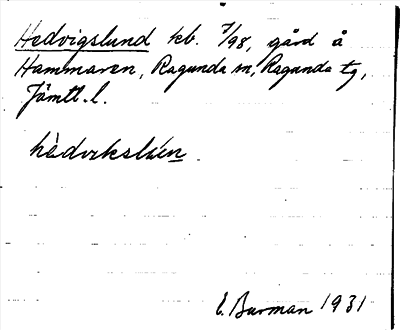 Hedvigslund kb. 7/98, gård å
Hammaren, Ragunda sn, Ragunda tg,
Jämtl. l.
E. Burman 1931